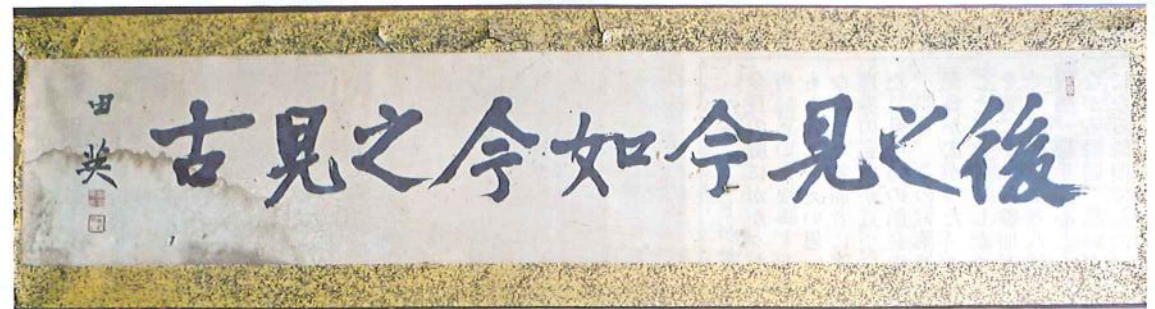 後之見今如今之見古
田英